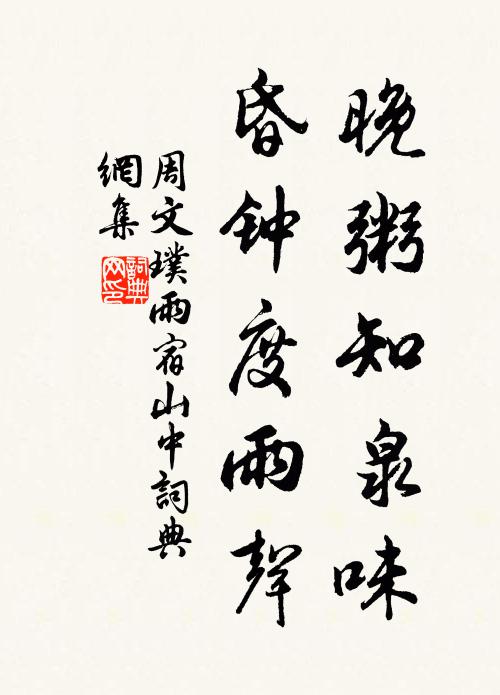 晚粥知泉味
昏钟度雨聲
周文璞雨宿山中詞典
網集
詞典
网印